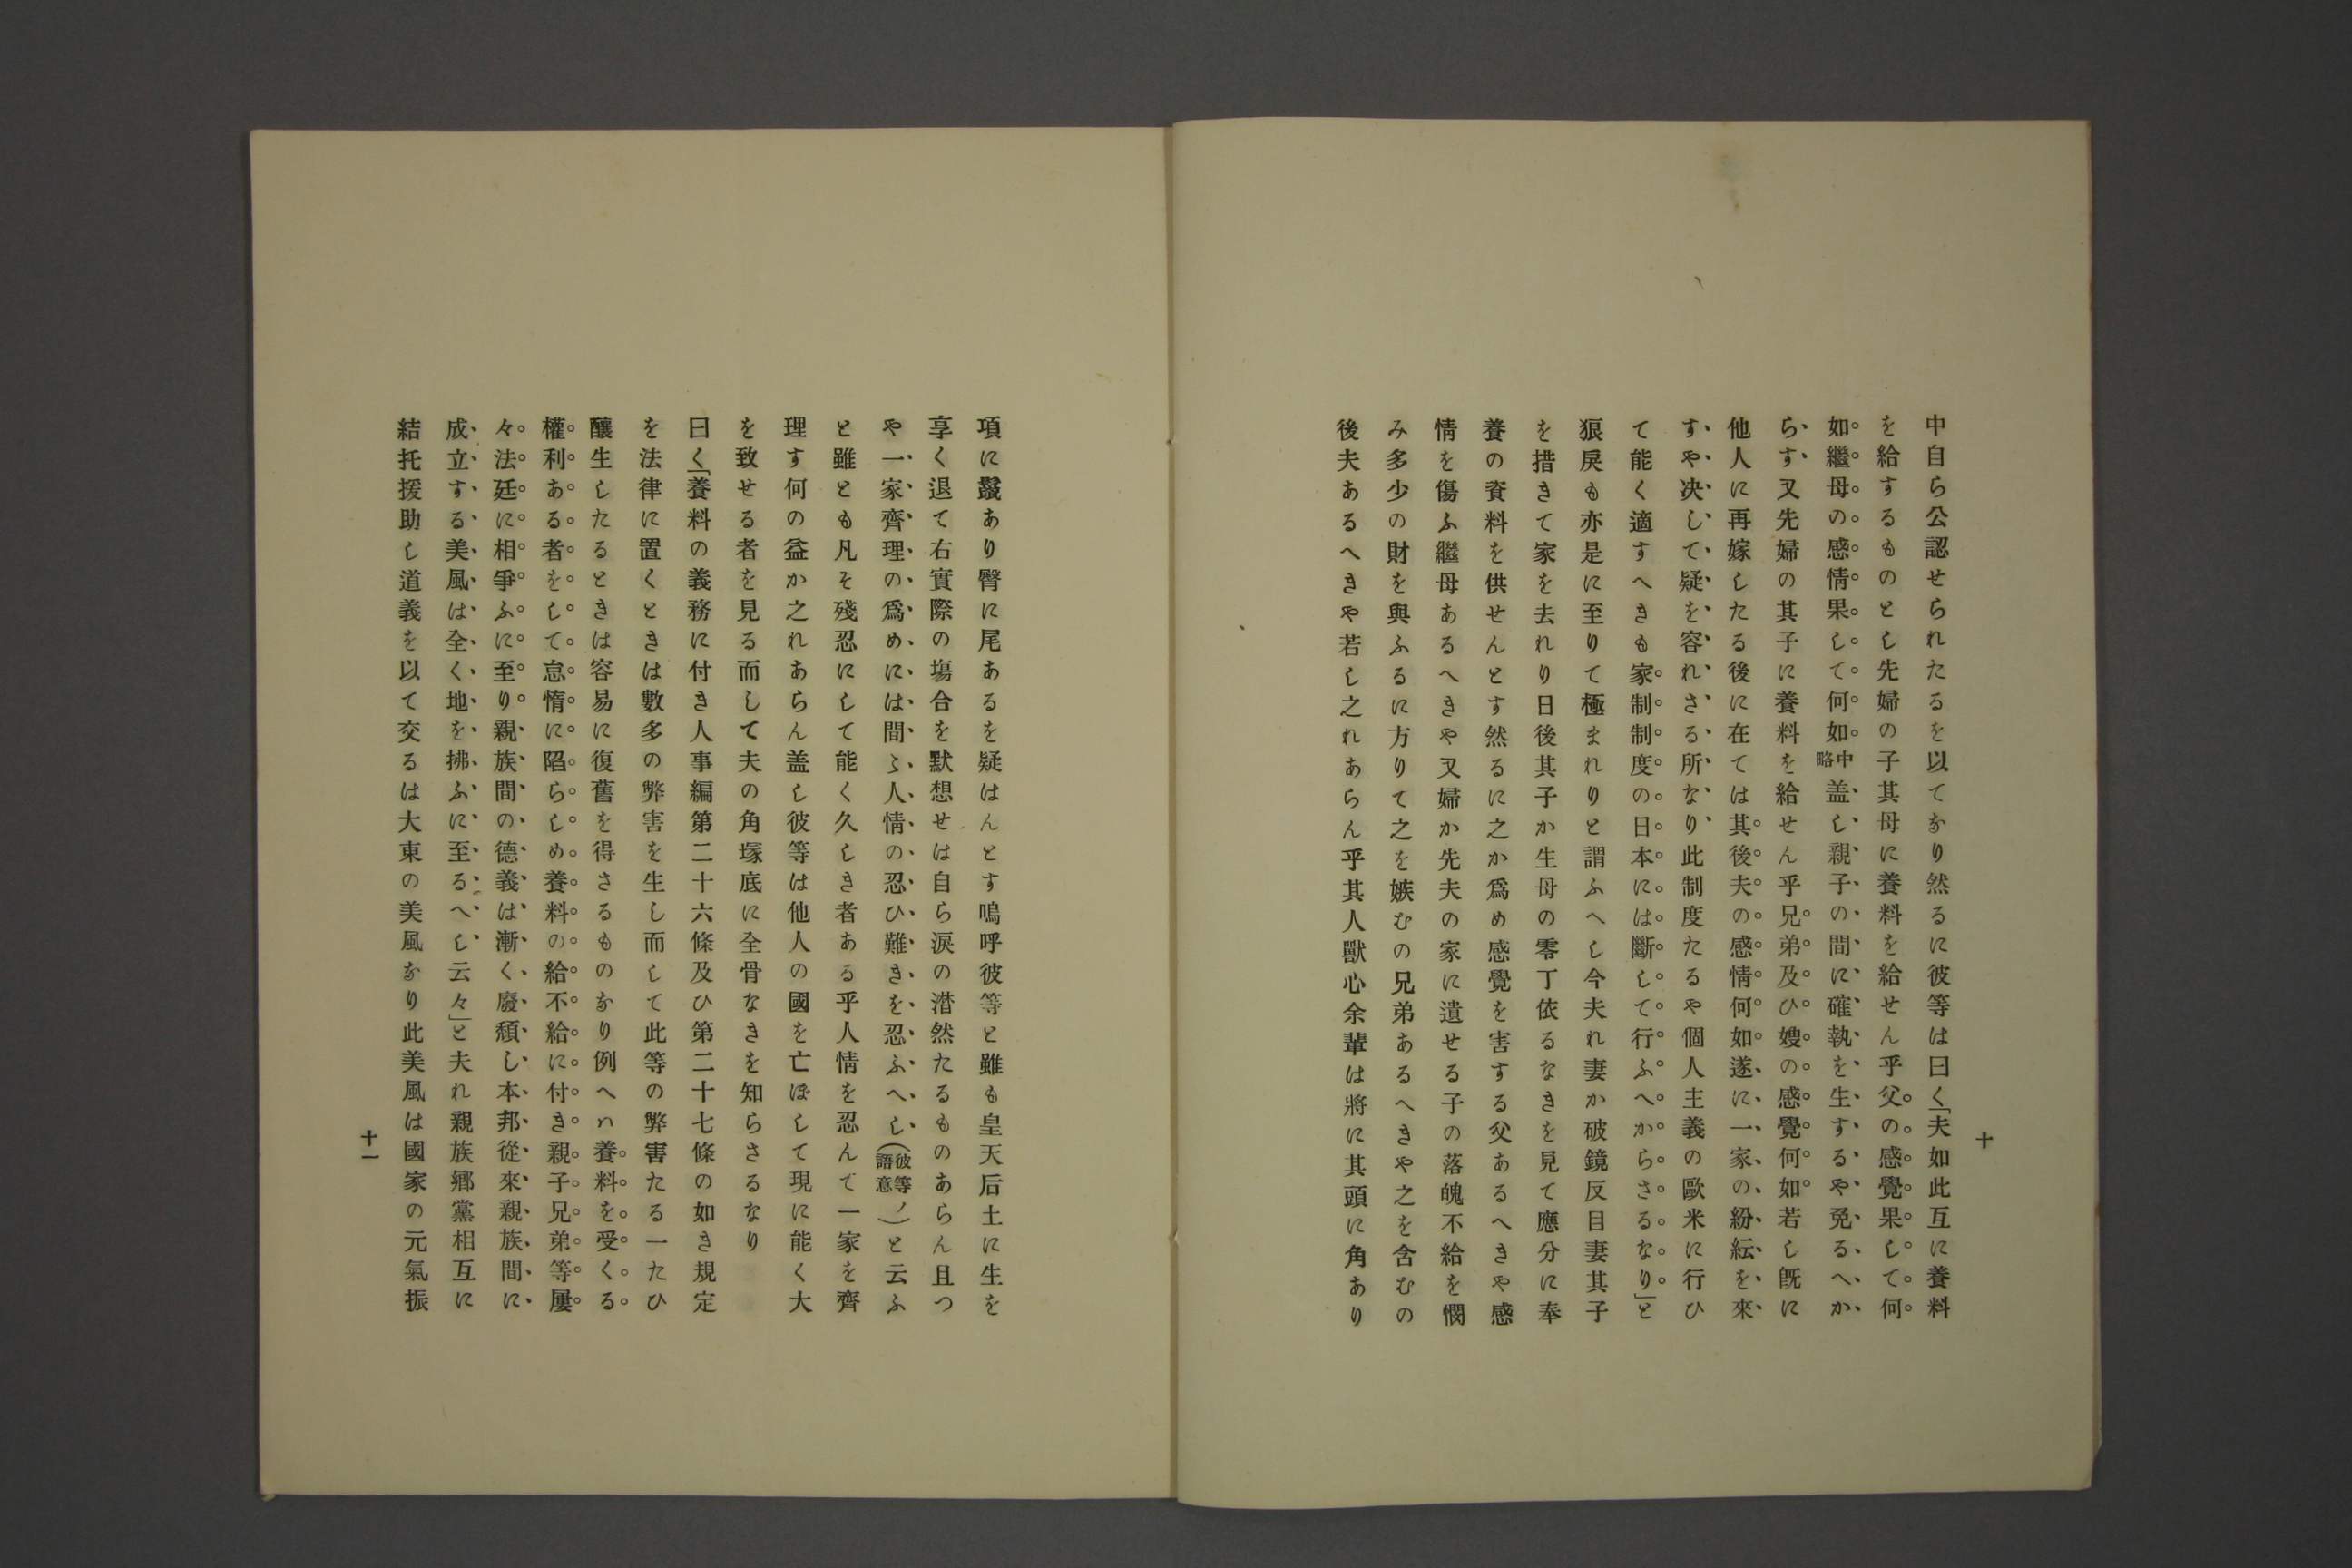 十
中自ら公認せられたるを以てなり然るに彼等は曰く「夫如此互に養料
を給するものとし先婦の子其母に養料を給せん乎父の感覺果して何
如繼母の感情果して何如中略盖し親子の間に確執を生するや免るへか
らす又先婦の其子に養料を給せん乎兄弟及ひ嫂の感覺何如若し旣に
他人に再嫁したる後に在ては其後夫の感情何如遂に一家の紛紜を來
すや决して疑を容れさる所なり此制度たるや個人主義の歐米に行ひ
て能く適すへきも家制制度の日本には斷して行ふへからさるなり」と
狠戻も亦是に至りて極まれりと謂ふへし今夫れ妻か破鏡反目妻其子
を措きて家を去れり日後其子か生母の零丁依るなきを見て應分に奉
養の資料を供せんとす然るに之か爲め感覺を害する父あるへきや感
情を傷ふ繼母あるへきや又婦か先夫の家に遺せる子の落魄不給を憫
み多少の財を與ふるに方りて之を嫉むの兄弟あるへきや之を含むの
後夫あるへきや若し之れあらん乎其人獸心余輩は將に其頭に角あり
項に鬣あり臀に尾あるを疑はんとす嗚呼彼等と雖も皇天后土に生を
享く退て右實際の塲合を默想せは自ら淚の潜然たるものあらん且つ
や一家齊理の爲めには間々人情の忍ひ難きを忍ふへし(彼等ノ語意)と云ふ
と雖とも凡そ殘忍にして能く久しき者ある乎人情を忍んて一家を齊
理す何の益か之れあらん盖し彼等は他人の國を亡ぼして現に能く大
を致せる者を見る而して夫の角塚底に全骨なきを知らさるなり
曰く「養料の義務に付き人事編第二十六條及ひ第二十七條の如き規定
を法律に置くときは數多の弊害を生し而して此等の弊害たる一たひ
釀生したるときは容易に復舊を得さるものなり例へハ養料を受くる
權利ある者をして怠惰に陷らしめ養料の給不給に付き親子兄弟等屢
々法廷に相爭ふに至り親族間の德義は漸く廢頽し本邦從來親族間に
成立する美風は全く地を拂ふに至るへし云々」と夫れ親族鄉黨相互に
結托援助し道義を以て交るは大東の美風なり此美風は國家の元氣振
十一